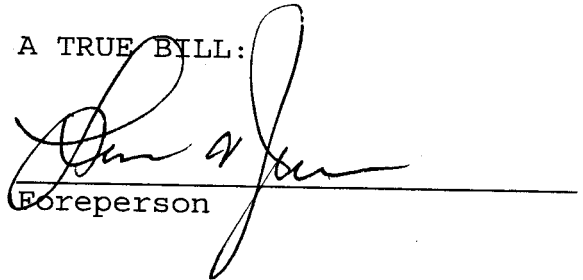 A TRUE BILL:
Foreperson